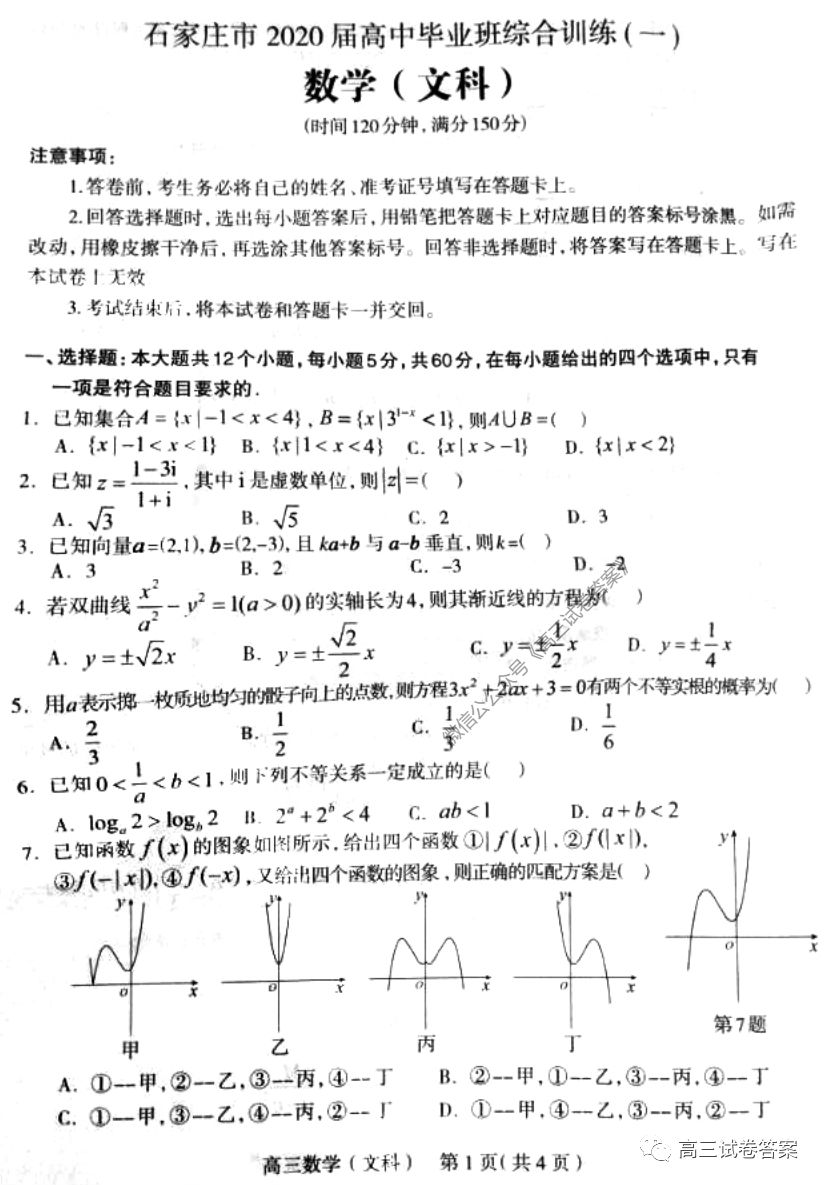 石家庄市 2020 届高中毕业班综合训练(一)
数学(文科)
(时间120分钟,满分150分)
注意事项:
1.答卷前,考生务必将自己的姓名、准考证号填写在答题卡上。
2.回答选择题时,选出每小题答案后,用铅笔把答题卡上对应题目的答案标号涂黑。如需
改动,用橡皮擦干净后,再选涂其他答案标号。回答非选择题时,将答案写在答题卡上。写在
本试卷上无效
3.考试结束后,将本试卷和答题卡一并交回。
一、选择题:本大题共12个小题,每小题5分,共60分,在每小题给出的四个选项中,只有
一项是符合题目要求的.
1. 已知集合A={x|-1<x<4}, B={x|3^{1-x}<1}, 则A∪B=( )
A. {x|-1<x<1} B. {x|1<x<4} C. {x|x>-1} D. {x|x<2}
2. 已知 z=\frac{1-3i}{1+i}, 其中 i 是虚数单位, 则|z|=( )
A. √3 B. √5 C. 2 D. 3
3. 已知向量a=(2,1), b=(2,-3), 且 ka+b 与 a-b 垂直, 则k=( )
A. 3 B. 2 C. -3 D. -2
4. 若双曲线 \frac{x²}{a²}-y²=1(a>0)的实轴长为4, 则其渐近线的方程为( )
A. y=±√2x B. y=±\frac{√2}{2}x C. y=±\frac{1}{2}x D. y=±\frac{1}{4}x
5. 用a表示掷一枚质地均匀的骰子向上的点数,则方程3x²+2ax+3=0有两个不等实根的概率为( )
A. \frac{2}{3} B. \frac{1}{2} C. \frac{1}{3} D. \frac{1}{6}
6. 已知 0<\frac{1}{a}<b<1, 则下列不等关系一定成立的是( )
A. log_a 2>log_b 2 B. 2^a+2^b<4 C. ab<1 D. a+b<2
7. 已知函数 f(x)的图象如图所示, 给出四个函数①|f(x)|, ②f(|x|),
③f(-|x|), ④f(-x), 又给出四个函数的图象, 则正确的匹配方案是( )
y y y y y
o x o x o x o x o x
甲 乙 丙 丁 第7题
A. ①--甲, ②--乙, ③--丙, ④--丁 B. ②--甲, ①--乙, ③--丙, ④--丁
C. ①--甲, ③--乙, ④--丙, ②--丁 D. ①--甲, ④--乙, ③--丙, ②--丁
高三数学(文科) 第1页(共4页)
微信公众号《高三试卷答案》
高三试卷答案